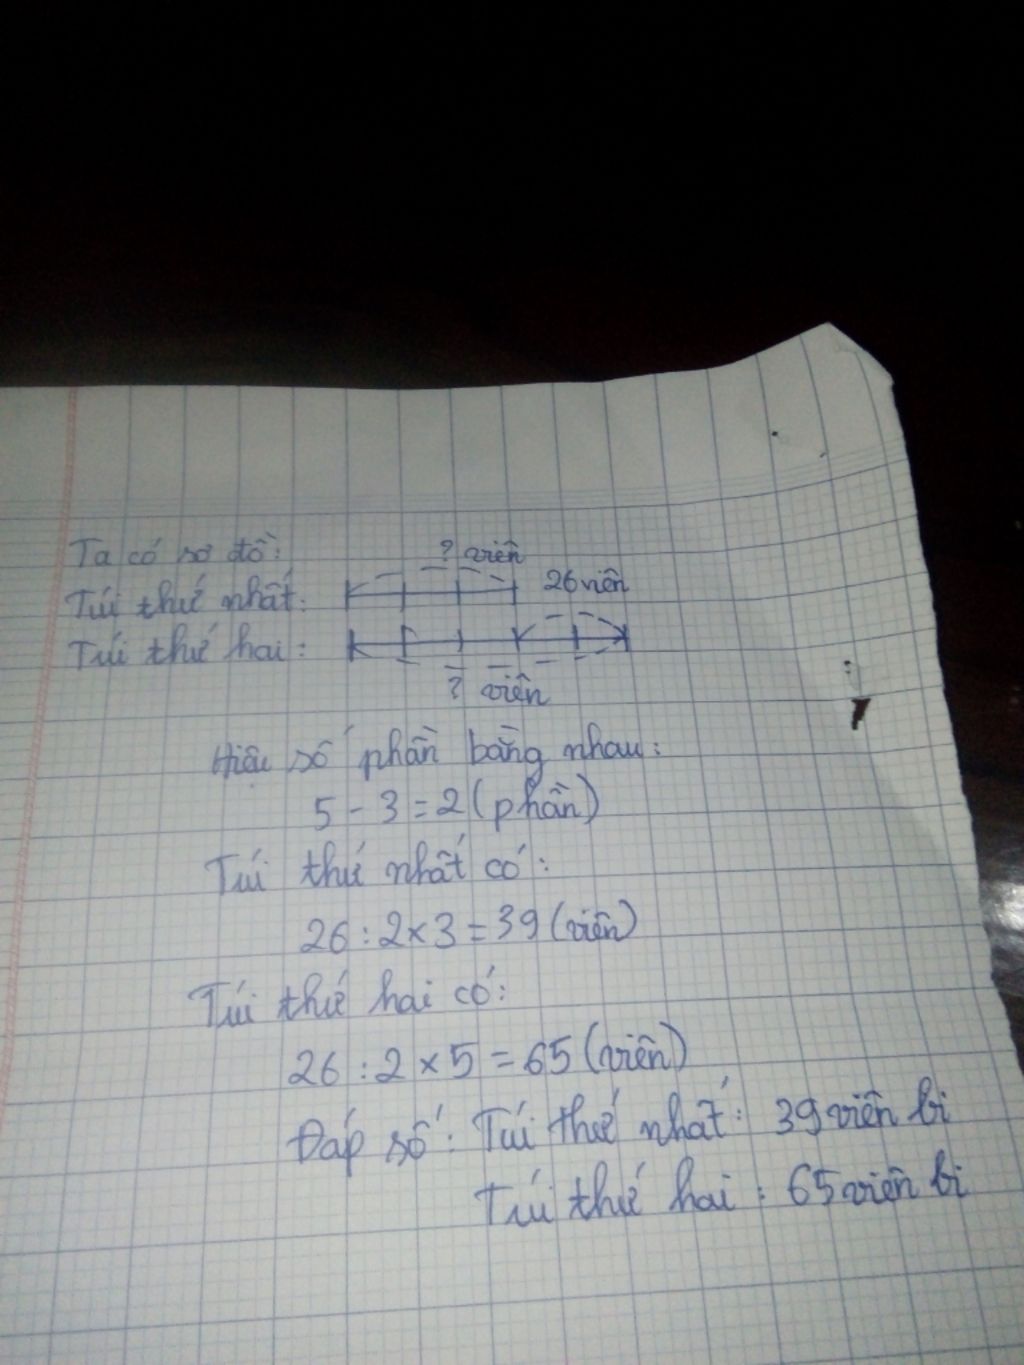 Ta có sơ đồ:
? viên
Túi thứ nhất:
26 viên
Túi thứ hai:
? viên
Hiệu số phần bằng nhau:
5 - 3 = 2 (phần)
Túi thứ nhất có:
26 : 2 × 3 = 39 (viên)
Túi thứ hai có:
26 : 2 × 5 = 65 (viên)
Đáp số: Túi thứ nhất: 39 viên bi
Túi thứ hai: 65 viên bi